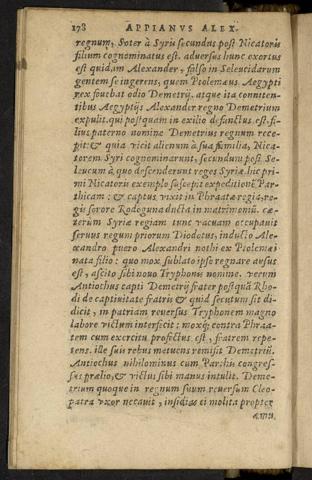 178 APPIANVS ALEX.
regnum, Soter à Syris secundus post Nicatoris
filium cognominatus est. adversus hunc exortus
est quidam Alexander, falso in Seleucidarum
gentem se ingerens, quem Ptolemæus Aegypti
rex fouebat odio Demetrij. atque ita connitten-
tibus Aegyptijs Alexander regno Demetrium
expulit. qui postquam in exilio defunctus est. fi-
lius paterno nomine Demetrius regnum rece-
pit: & quia vicit alienum à sua familia, Nica-
torem Syri cognominarunt, secundum post Se-
leucum à quo descenderunt reges Syriæ. hic pri-
mi Nicatoris exemplo suscepit expeditionē Par-
thicam: & captus vixit in Phraatæ regia, re-
gis sorore Rodoguna ducta in matrimoniū. cæ-
terùm Syriæ regiam tunc vacuam occupauit
seruus regum priorum Diodotus, inducto Ale-
xandro puero Alexandri nothi ex Ptolemæi
nata filio: quo mox sublato ipse regnare ausus
est, ascito sibi nouo Tryphonis nomine. verùm
Antiochus capti Demetrij frater postquā Rho-
di de captiuitate fratris & quid secutum sit di-
dicit, in patriam reuersus Tryphonem magno
labore victum interficit: moxq́; contra Phraa-
tem cum exercitu profectus est, fratrem repe-
tens. ille sui rebus metuens remisit Demetriū.
Antiochus nihilominus cum Parthis congres-
ses prælio, & victus sibi manus intulit. Deme-
trium quoque in regnum suum reuersum Cleo-
patra vxor necauit, insidias ei molita propter
æmu.